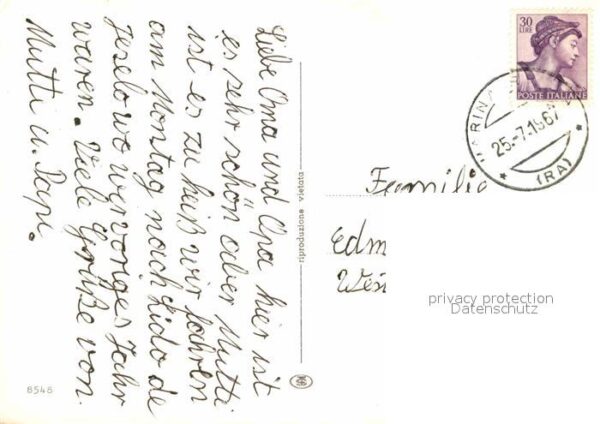 Liebe Oma und Opa hier ist
es sehr schön aber Mutti
ist es zu heiß wir fahren
am Montag nach Lido de
Jeselo wo wir voriges Jahr
waren. Viele Grüße von.
Mutti u. Papi.
riproduzione vietata
8548
30
LIRE
POSTE ITALIANE
MARINA
25.-7.1967
(RA)
Familie
Edm
Wein
privacy protection
Datenschutz